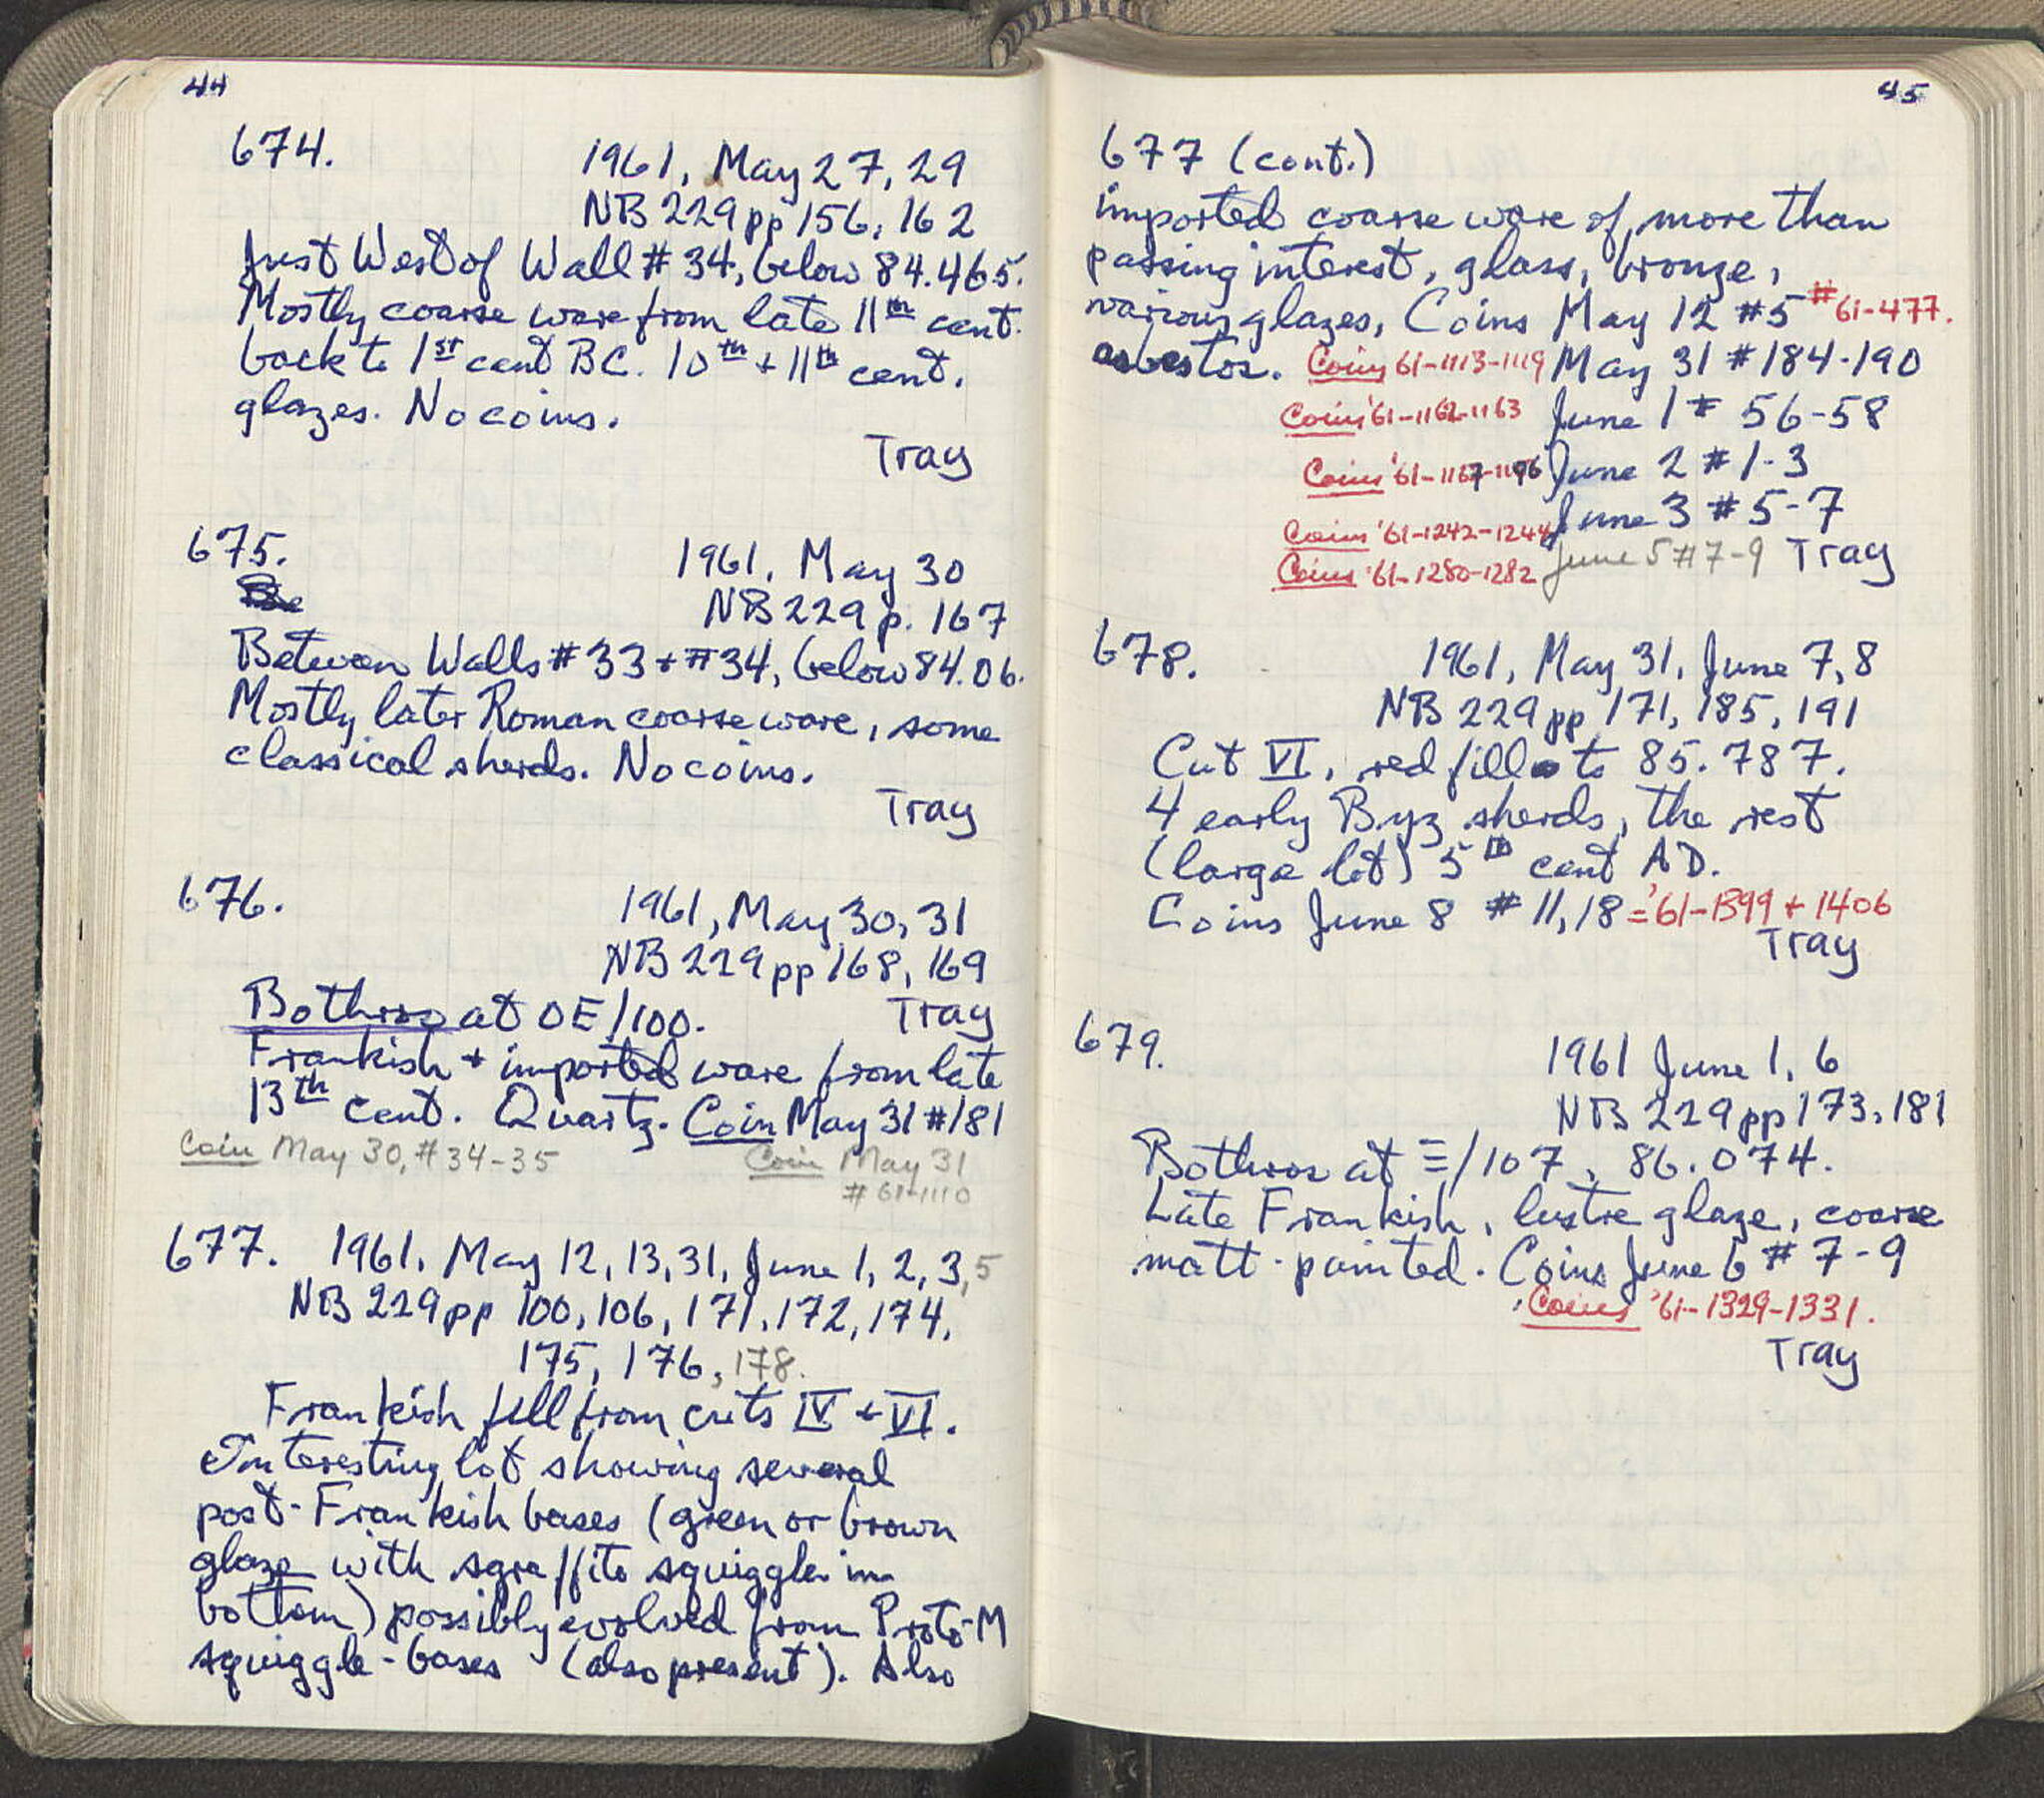 44
674.
1961, May 27, 29
NB 229 pp 156, 162
Just West of Wall # 34, below 84.465.
Mostly coarse ware from late 11th cent.
back to 1st cent BC. 10th + 11th cent.
glazes. No coins.
Tray
675.
1961, May 30
NB 229 p. 167
Between Walls # 33 + # 34, below 84.06.
Mostly later Roman coarse ware, some
classical sherds. No coins.
Tray
676.
1961, May 30, 31
NB 229 pp 168, 169
Bothros at OE/100. Tray
Frankish + imported ware from late
13th cent. Quartz. Coin May 31 #181
Coin May 30, # 34-35 Coin May 31
# 61-1110
677. 1961, May 12, 13, 31, June 1, 2, 3, 5
NB 229 pp 100, 106, 171, 172, 174,
175, 176, 178.
Frankish fill from cuts IV + VI.
Interesting lot showing several
post-Frankish bases (green or brown
glaze with sgraffito squiggle in
bottom) possibly evolved from Proto-M
squiggle-bases (also present). Also
45
677 (cont.)
imported coarse ware of more than
passing interest, glass, bronze,
various glazes, Coins May 12 #5 #61-477.
asbestos. Coins 61-1113-1119 May 31 #184-190
Coins '61-1162-1163 June 1 # 56-58
Coins '61-1167- June 2 # 1-3
June 3 # 5-7
Coins '61-1242-1244
Coins '61-1280-1282 June 5 #7-9 Tray
678.
1961, May 31, June 7, 8
NB 229 pp 171, 185, 191
Cut VI, red fill to 85.787.
4 early Byz sherds, the rest
(large lot) 5th cent AD.
Coins June 8 # 11, 18 = '61-1399 + 1406
Tray
679.
1961 June 1, 6
NB 229 pp 173, 181
Bothros at Ξ/107, 86.074.
Late Frankish, lustre glaze, coarse
matt-painted. Coins June 6 # 7-9
Coins '61-1329-1331.
Tray